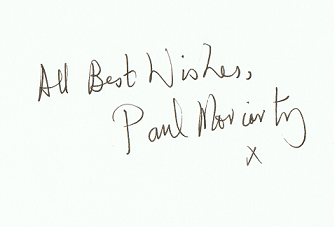 All Best Wishes,
Paul Moriarty
x